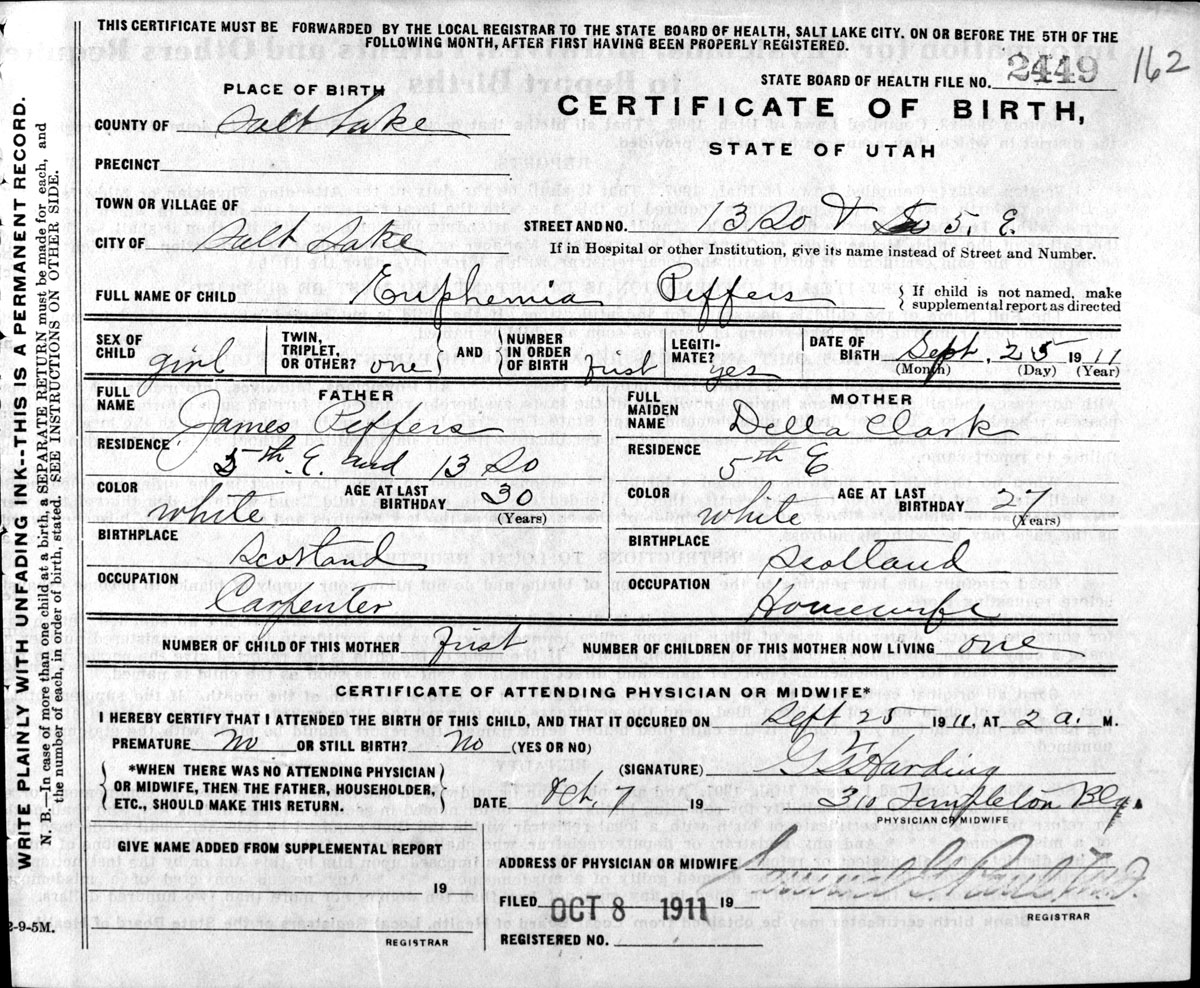 THIS CERTIFICATE MUST BE FORWARDED BY THE LOCAL REGISTRAR TO THE STATE BOARD OF HEALTH, SALT LAKE CITY. ON OR BEFORE THE 5TH OF THE
FOLLOWING MONTH, AFTER FIRST HAVING BEEN PROPERLY REGISTERED.
STATE BOARD OF HEALTH FILE NO. 2449 162
PLACE OF BIRTH
CERTIFICATE OF BIRTH,
COUNTY OF Salt Lake
STATE OF UTAH
PRECINCT
TOWN OR VILLAGE OF
STREET AND NO. 13 So 5. E.
CITY OF Salt Lake
If in Hospital or other Institution, give its name instead of Street and Number.
FULL NAME OF CHILD Euphemia Peffers
{ If child is not named, make
supplemental report as directed
SEX OF CHILD girl
TWIN, TRIPLET, OR OTHER? one } AND { NUMBER IN ORDER OF BIRTH first
LEGITI-MATE? yes
DATE OF BIRTH Sept. 25 1911
(Month) (Day) (Year)
FATHER
FULL NAME James Peffers
RESIDENCE 5th. E. and 13 So
COLOR White
AGE AT LAST BIRTHDAY 30 (Years)
BIRTHPLACE Scotland
OCCUPATION Carpenter
MOTHER
FULL MAIDEN NAME Della Clark
RESIDENCE 5th E
COLOR White
AGE AT LAST BIRTHDAY 27 (Years)
BIRTHPLACE Scotland
OCCUPATION Housewife
NUMBER OF CHILD OF THIS MOTHER First NUMBER OF CHILDREN OF THIS MOTHER NOW LIVING one
CERTIFICATE OF ATTENDING PHYSICIAN OR MIDWIFE*
I HEREBY CERTIFY THAT I ATTENDED THE BIRTH OF THIS CHILD, AND THAT IT OCCURED ON Sept 25 1911, AT 2 a. M.
PREMATURE No OR STILL BIRTH? No (YES OR NO)
{ *WHEN THERE WAS NO ATTENDING PHYSICIAN
OR MIDWIFE, THEN THE FATHER, HOUSEHOLDER,
ETC., SHOULD MAKE THIS RETURN. }
(SIGNATURE) Harding
DATE Oct. 7 19 310 Templeton Bldg.
PHYSICIAN OR MIDWIFE
GIVE NAME ADDED FROM SUPPLEMENTAL REPORT
19
REGISTRAR
ADDRESS OF PHYSICIAN OR MIDWIFE
FILED OCT 8 1911 19
REGISTRAR
REGISTERED NO.
2-9-5M.
WRITE PLAINLY WITH UNFADING INK--THIS IS A PERMANENT RECORD.
N. B.—In case of more than one child at a birth, a SEPARATE RETURN must be made for each, and
the number of each, in order of birth, stated. SEE INSTRUCTIONS ON OTHER SIDE.